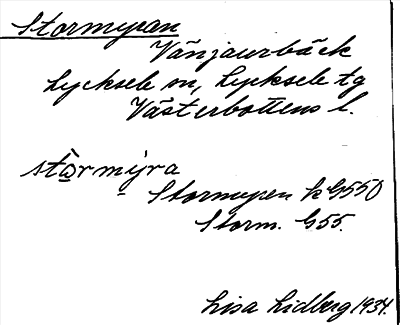 Stormyran
Vänjaurbäck
Lycksele sn, Lycksele tg
Västerbottens l.
stòrmýra
Stormyren k G550
Storm. G55.
Lisa Lidberg 1934.